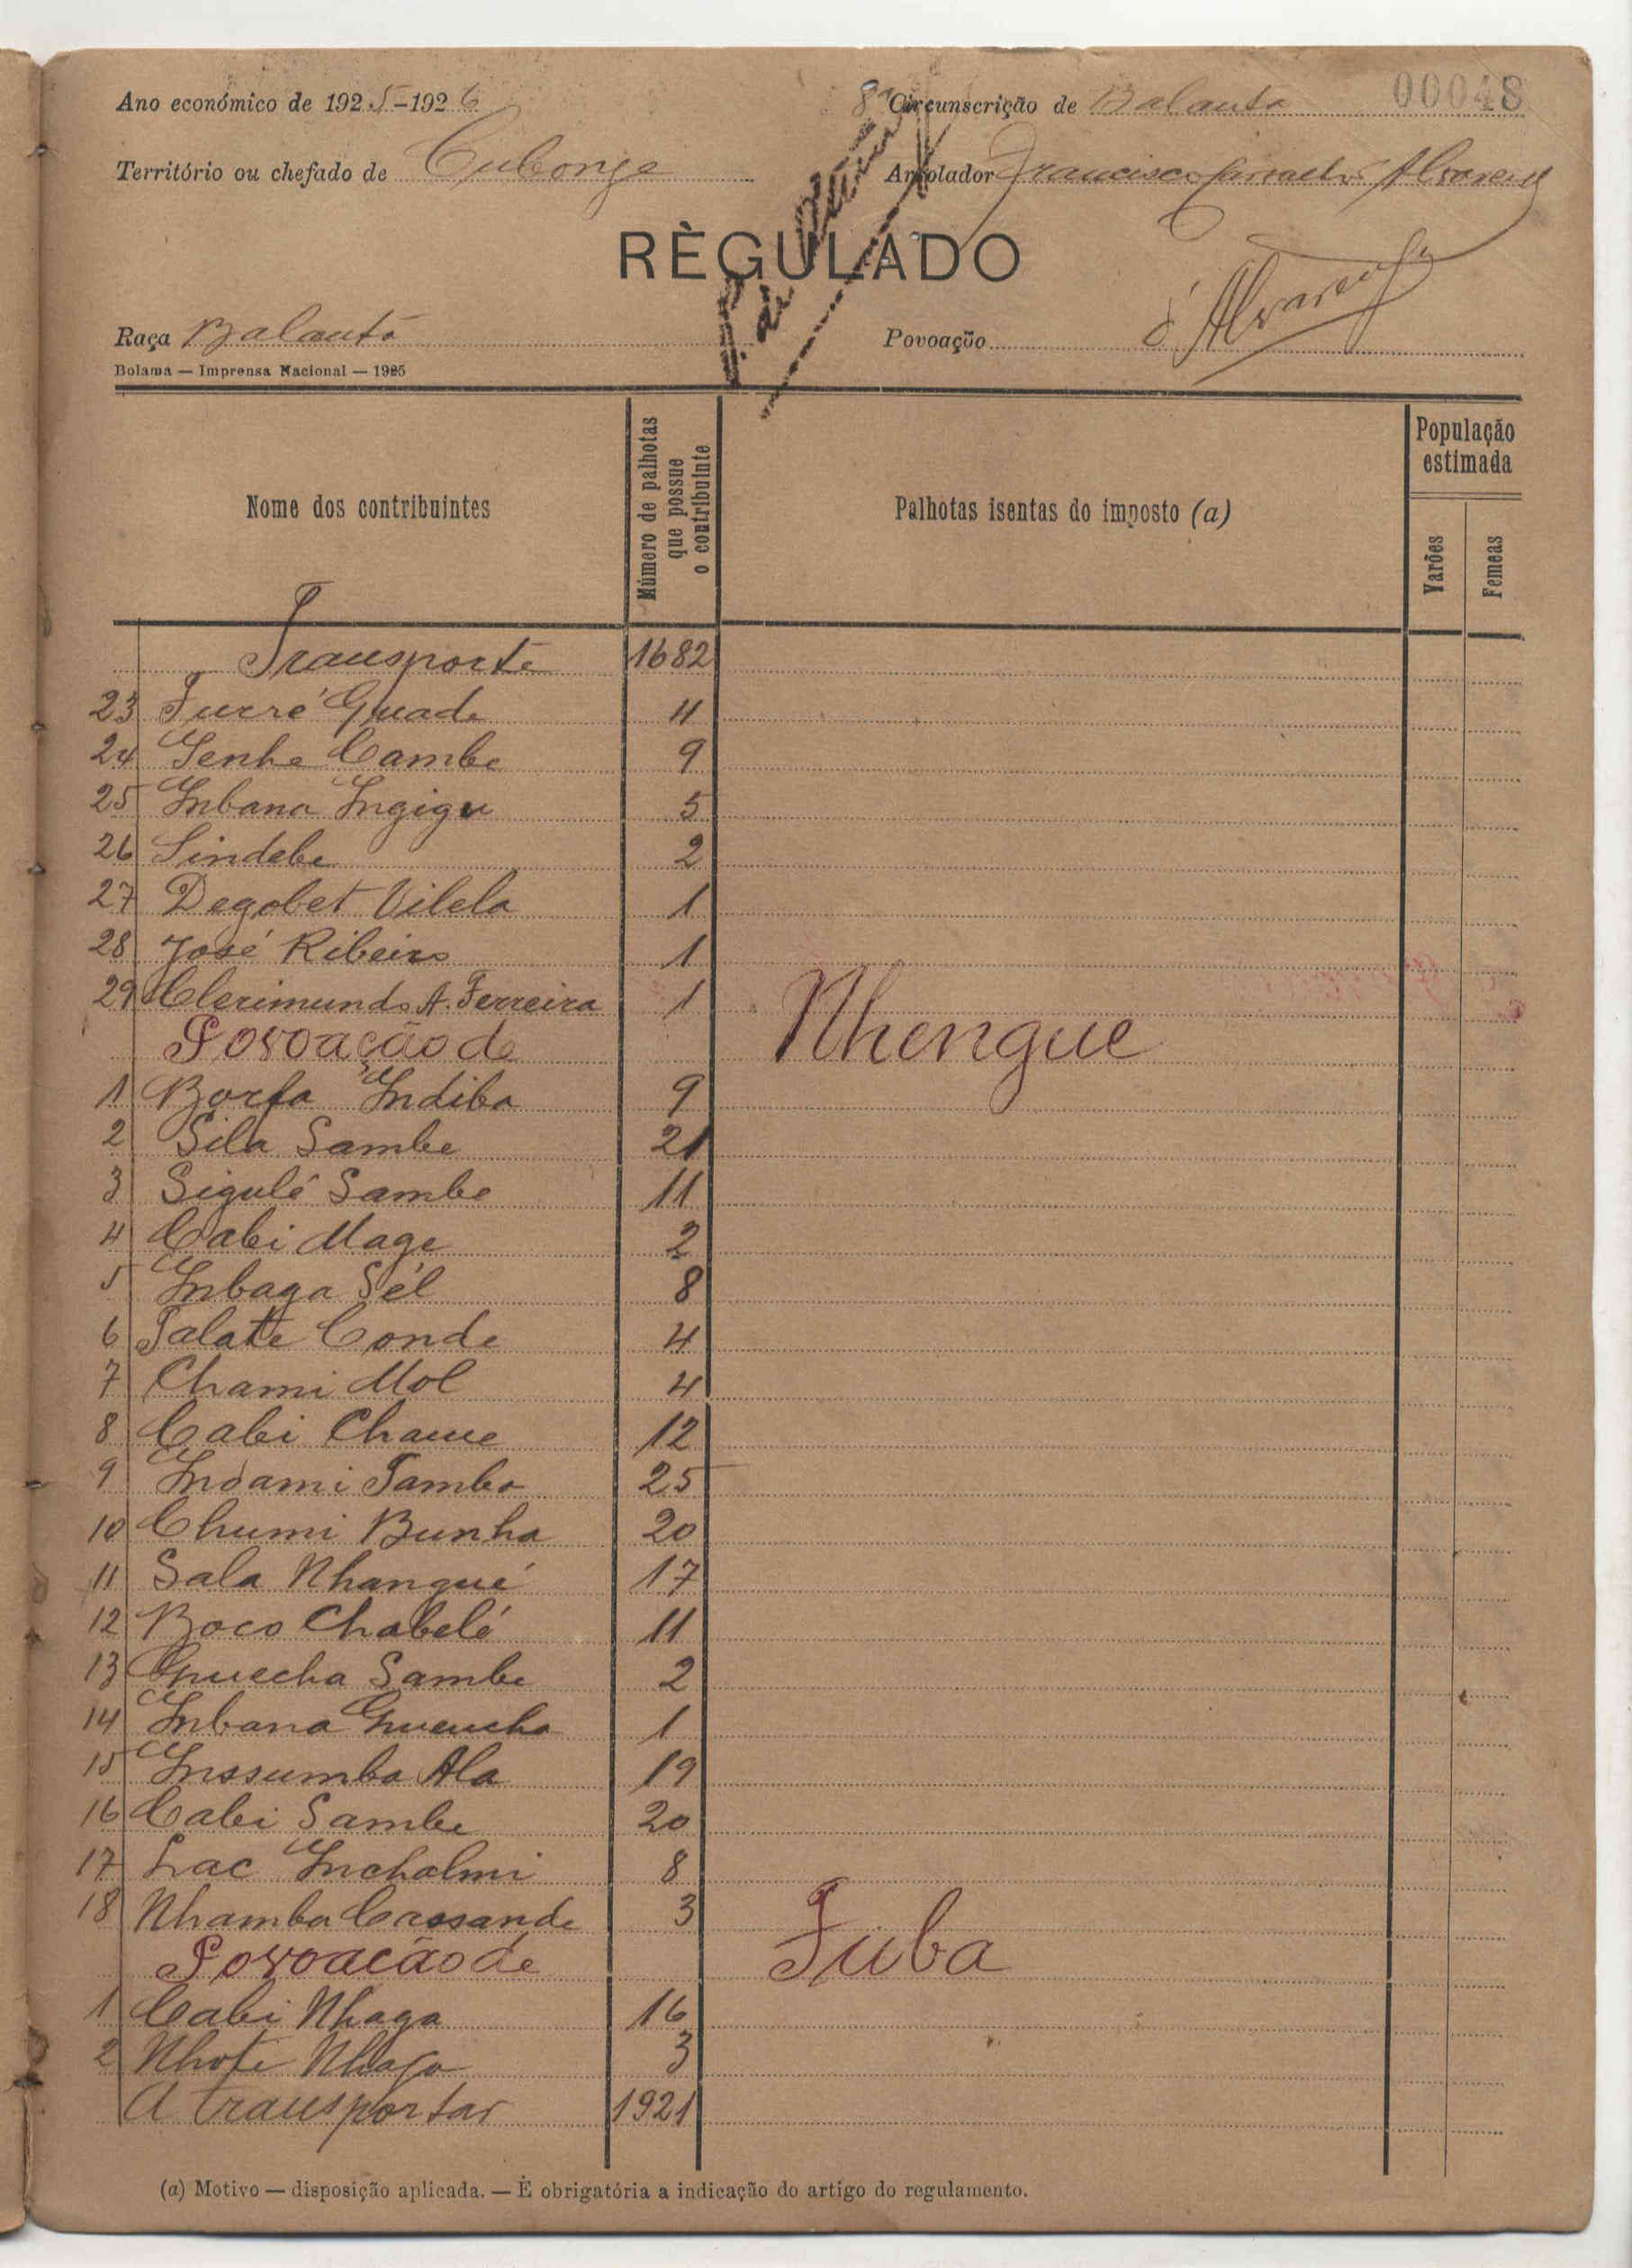 Ano económico de 1925-1926
8ª Circunscrição de Balanta
00048
Território ou chefado de Cubonge
Arrolador Francisco Alvarenga
RÈGULADO
Raça Balanta
Povoação
Alvarenga
Bolama — Imprensa Nacional — 1925
Nome dos contribuintes
Número de palhotas que possue o contribuinte
Palhotas isentas do imposto (a)
População estimada
Varões
Femeas
Transporte 1682
23 Furré Guade 4
24 Senhe Cambe 9
25 Inbana Ingigu 5
26 Sindebe 2
27 Degobet Vilela 1
28 José Ribeiro 1
29 Clerimundo A. Ferreira 1
Povoação de Nhengue
1 Borfa Indiba 9
2 Sila Sambe 21
3 Sigulé Sambe 11
4 Cabi Mage 2
5 Inbaga Sél 8
6 Talate Conde 4
7 Chami Mol 4
8 Cabi Chame 12
9 Indami Tamba 25
10 Chumi Bunha 20
11 Sala Nhangué 17
12 Boco Chabelé 11
13 Guecha Sambe 2
14 Inbana Gueucha 1
15 Inssumba Ala 19
16 Cabi Sambe 20
17 Lac Incholmi 8
18 Nhamba Cassande 3
Povoacão de Fuba
1 Cabi Nhaga 16
2 Nhote Nhaga 3
A transportar 1921
(a) Motivo — disposição aplicada. — É obrigatória a indicação do artigo do regulamento.